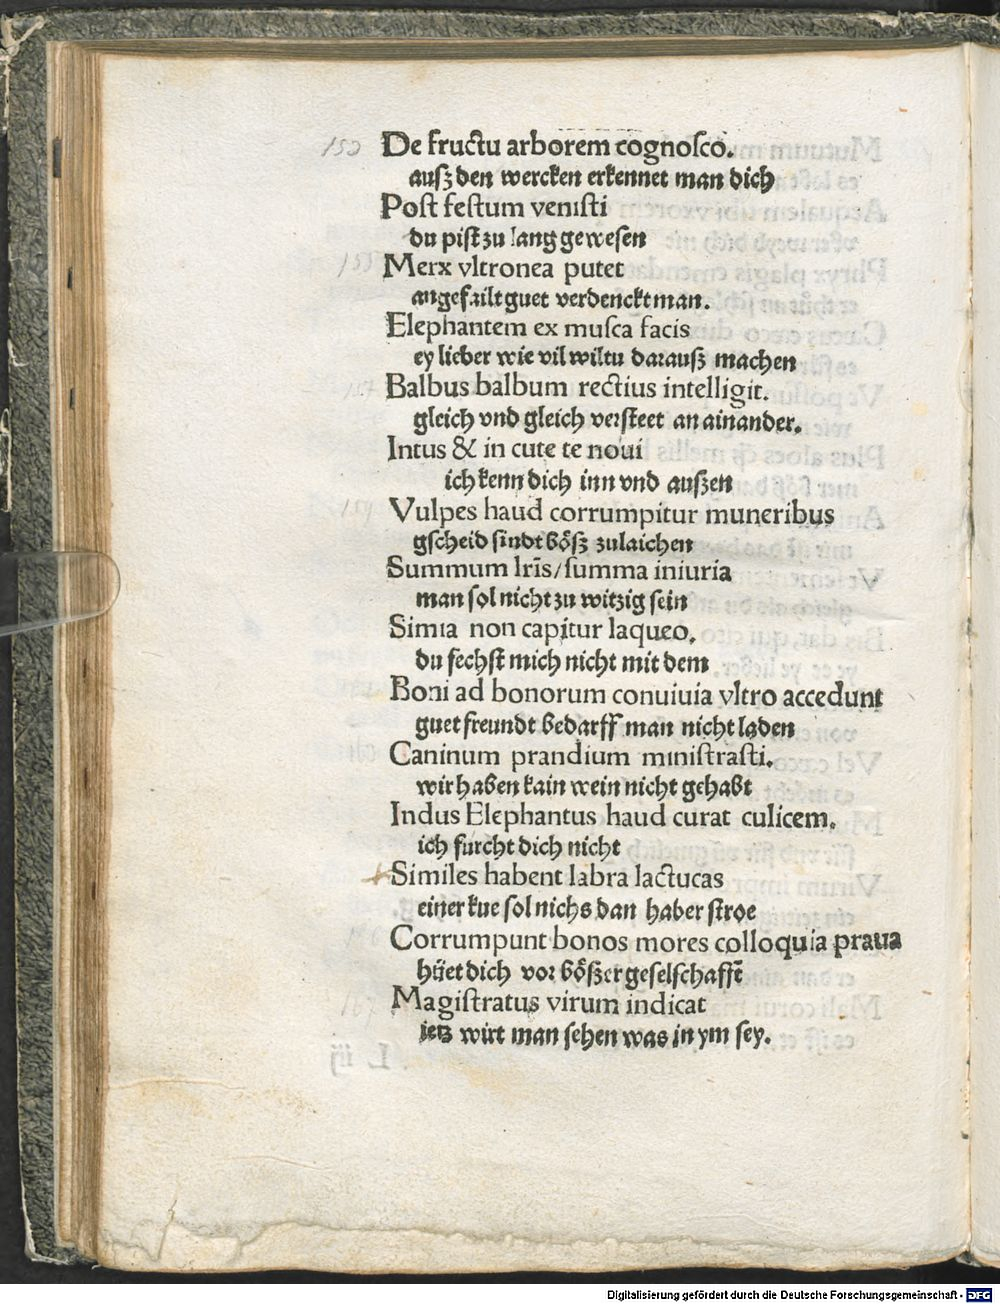 150 De fructu arborem cognoſco.
auſz den wercken erkennet man dich
Poſt feſtum veniſti
du piſt zu lang geweſen
Merx vltronea putet
angefailt guet verdenckt man.
Elephantem ex muſca facis
ey lieber wie vil wiltu darauſz machen
Balbus balbum rectius intelligit.
gleich vnd gleich verſteet an ainander.
Intus & in cute te noui
ich kenn dich inn vnd auſzen
Vulpes haud corrumpitur muneribus
gſcheid ſindt böſz zulaichen
Summum Iris/ſumma iniuria
man ſol nicht zu witzig ſein
Simia non capitur laqueo.
du fechſt mich nicht mit dem
Boni ad bonorum conuiuia vltro accedunt
guet freundt bedarff man nicht laden
Caninum prandium miniſtraſti.
wir haben kain wein nicht gehabt
Indus Elephantus haud curat culicem.
ich furcht dich nicht
Similes habent labra lactucas
einer kue ſol nichs dan haber ſtroe
Corrumpunt bonos mores colloquia praua
hüet dich vor böſzer geſelſchafft
Magiſtratus virum indicat
ietz wirt man ſehen was in ym ſey.
Digitalisierung gefördert durch die Deutsche Forschungsgemeinschaft - DFG